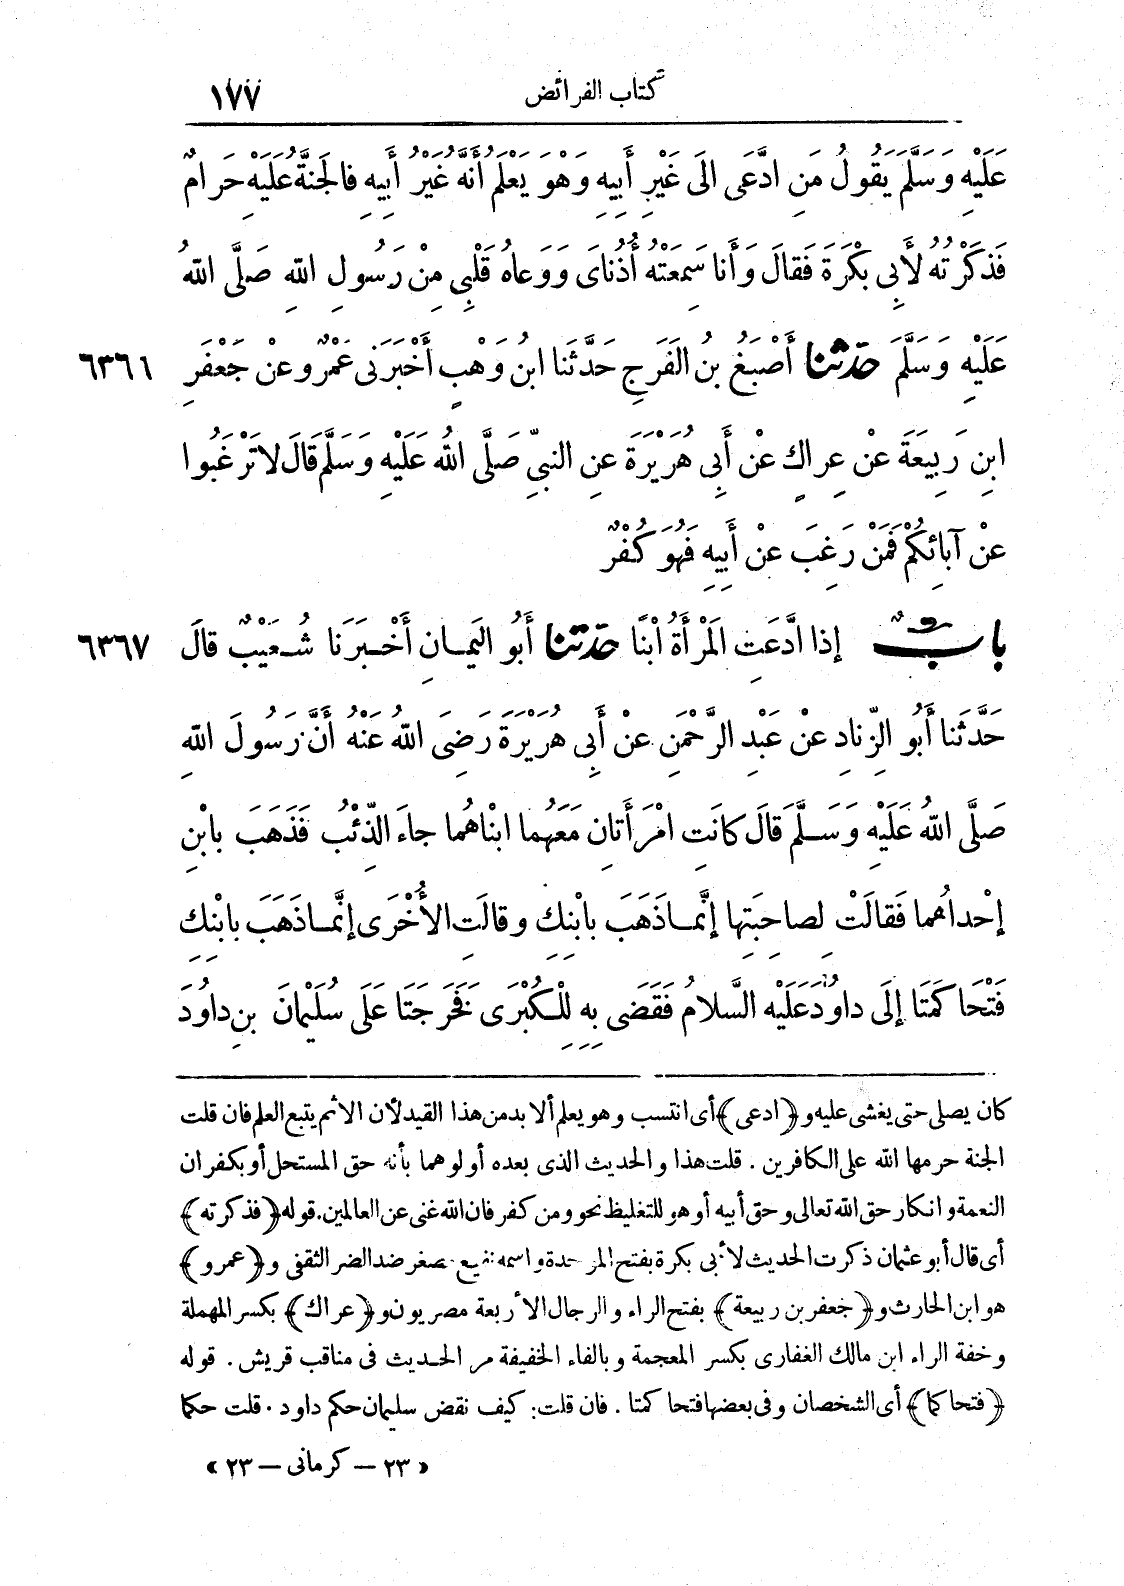 ١٧٧
كتاب الفرائض
عَلَيْهِ وَسَلَّمَ يَقُولُ مَنِ ادَّعَى الَى غَيْرِ أَبِيهِ وَهْوَ يَعْلَمُ أَنَّهُ غَيْرُ أَبِيهِ فالجَنَّةُ عَلَيْهِ حَرامٌ
فَذَكَرْتُهُ لأَبِى بَكْرَةَ فَقالَ وَأَنا سَمِعَتْهُ أُذُناىَ وَوَعاهُ قَلْبِى مِنْ رَسُولِ اللهِ صَلَّى اللهُ
عَلَيْهِ وَسَلَّمَ حدثنا أَصْبَغُ بنُ الفَرَجِ حَدَّثَنا ابنُ وَهْبٍ أَخْبَرَنى عَمْرٌو عنْ جَعْفَرِ ٦٣٦٦
ابنِ رَبِيعَةَ عنْ عِراكٍ عنْ أَبِى هُرَيْرَةَ عنِ النبىِّ صَلَّى اللهُ عَلَيْهِ وَسَلَّمَ قَالَ لا تَرْغَبُوا
عنْ آبائِكُمْ فَمَنْ رَغِبَ عنْ أَبِيهِ فَهُوَ كُفْرٌ
بابٌ إذا ادَّعَتِ المَرْأَةُ ابْنًا حدثنا أَبُو اليَمانِ أَخْبَرَنا شُعَيْبٌ قالَ ٦٣٦٧
حَدَّثَنا أَبُو الزِّنادِ عنْ عَبْدِ الرَّحْمٰنِ عنْ أَبِى هُرَيْرَةَ رَضِىَ اللهُ عَنْهُ أَنَّ رَسُولَ اللهِ
صَلَّى اللهُ عَلَيْهِ وَسَلَّمَ قَالَ كانَتِ امْرَأَتانِ مَعَهُما ابْناهُما جاءَ الذِّئْبُ فَذَهَبَ بابْنِ
إحْداهُما فَقالَتْ لِصاحِبَتِها إنَّما ذَهَبَ بابْنِكِ وقالَتِ الأُخْرَى إنَّما ذَهَبَ بابْنِكِ
فَتَحاكَمَتا إلَى داوُدَ عَلَيْهِ السَّلامُ فَقَضَى بِهِ لِلْكُبْرَى فَخَرَجَتَا عَلَى سُلَيْمانَ بنِ داوُدَ
كان يصلى حتى يغشى عليه و﴿ادعى﴾ أى انتسب وهو يعلم ألا بد من هذا القيد لأن الاثم يتبع العلم فان قلت
الجنة حرمها الله على الكافرين . قلت هذا والحديث الذى بعده أولوهما بأنه حق المستحل أو بكفران
النعمة وانكار حق الله تعالى وحق أبيه أو هو للتغليظ نحو ومن كفر فان الله غنى عن العالمين . قوله ﴿فذكرته﴾
أى قال أبو عثمان ذكرت الحديث لأبى بكرة بفتح الموحدة واسمه نفيع مصغر ضد الضر الثقفى و﴿عمرو﴾
هو ابن الحارث و﴿جعفر بن ربيعة﴾ بفتح الراء والرجال الأربعة مصريون و﴿عراك﴾ بكسر المهملة
وخفة الراء ابن مالك الغفارى بكسر المعجمة وبالفاء الخفيفة مر الحديث فى مناقب قريش . قوله
﴿فتحاكما﴾ أى الشخصان وفى بعضها فتحاكمتا . فان قلت: كيف نقض سليمان حكم داود . قلت حكما
« ٢٣ — كرمانى — ٢٣ »